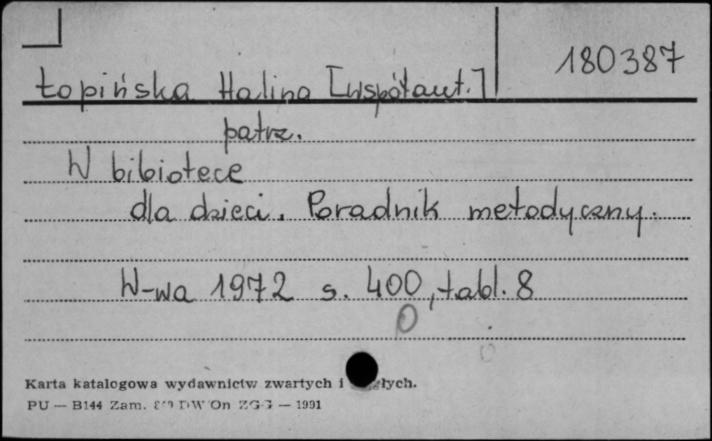 180387
Łopińska Halina [współaut.]
patrz.
W bibiotece
dla dzieci. Poradnik metodyczny.
W-wa 1972 s. 400, tabl. 8
Karta katalogowa wydawnictw zwartych i
PU — B144 Zam. DW On ZGG — 1991